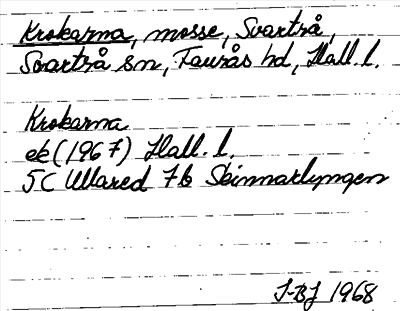 Krokarna, mosse, Svartrå,
Svartrå sn, Faurås hd, Hall. l.
Krokarna
ek (1967) Hall. l.
5C Ullared 7b Skinnarlyngen
J-BJ 1968